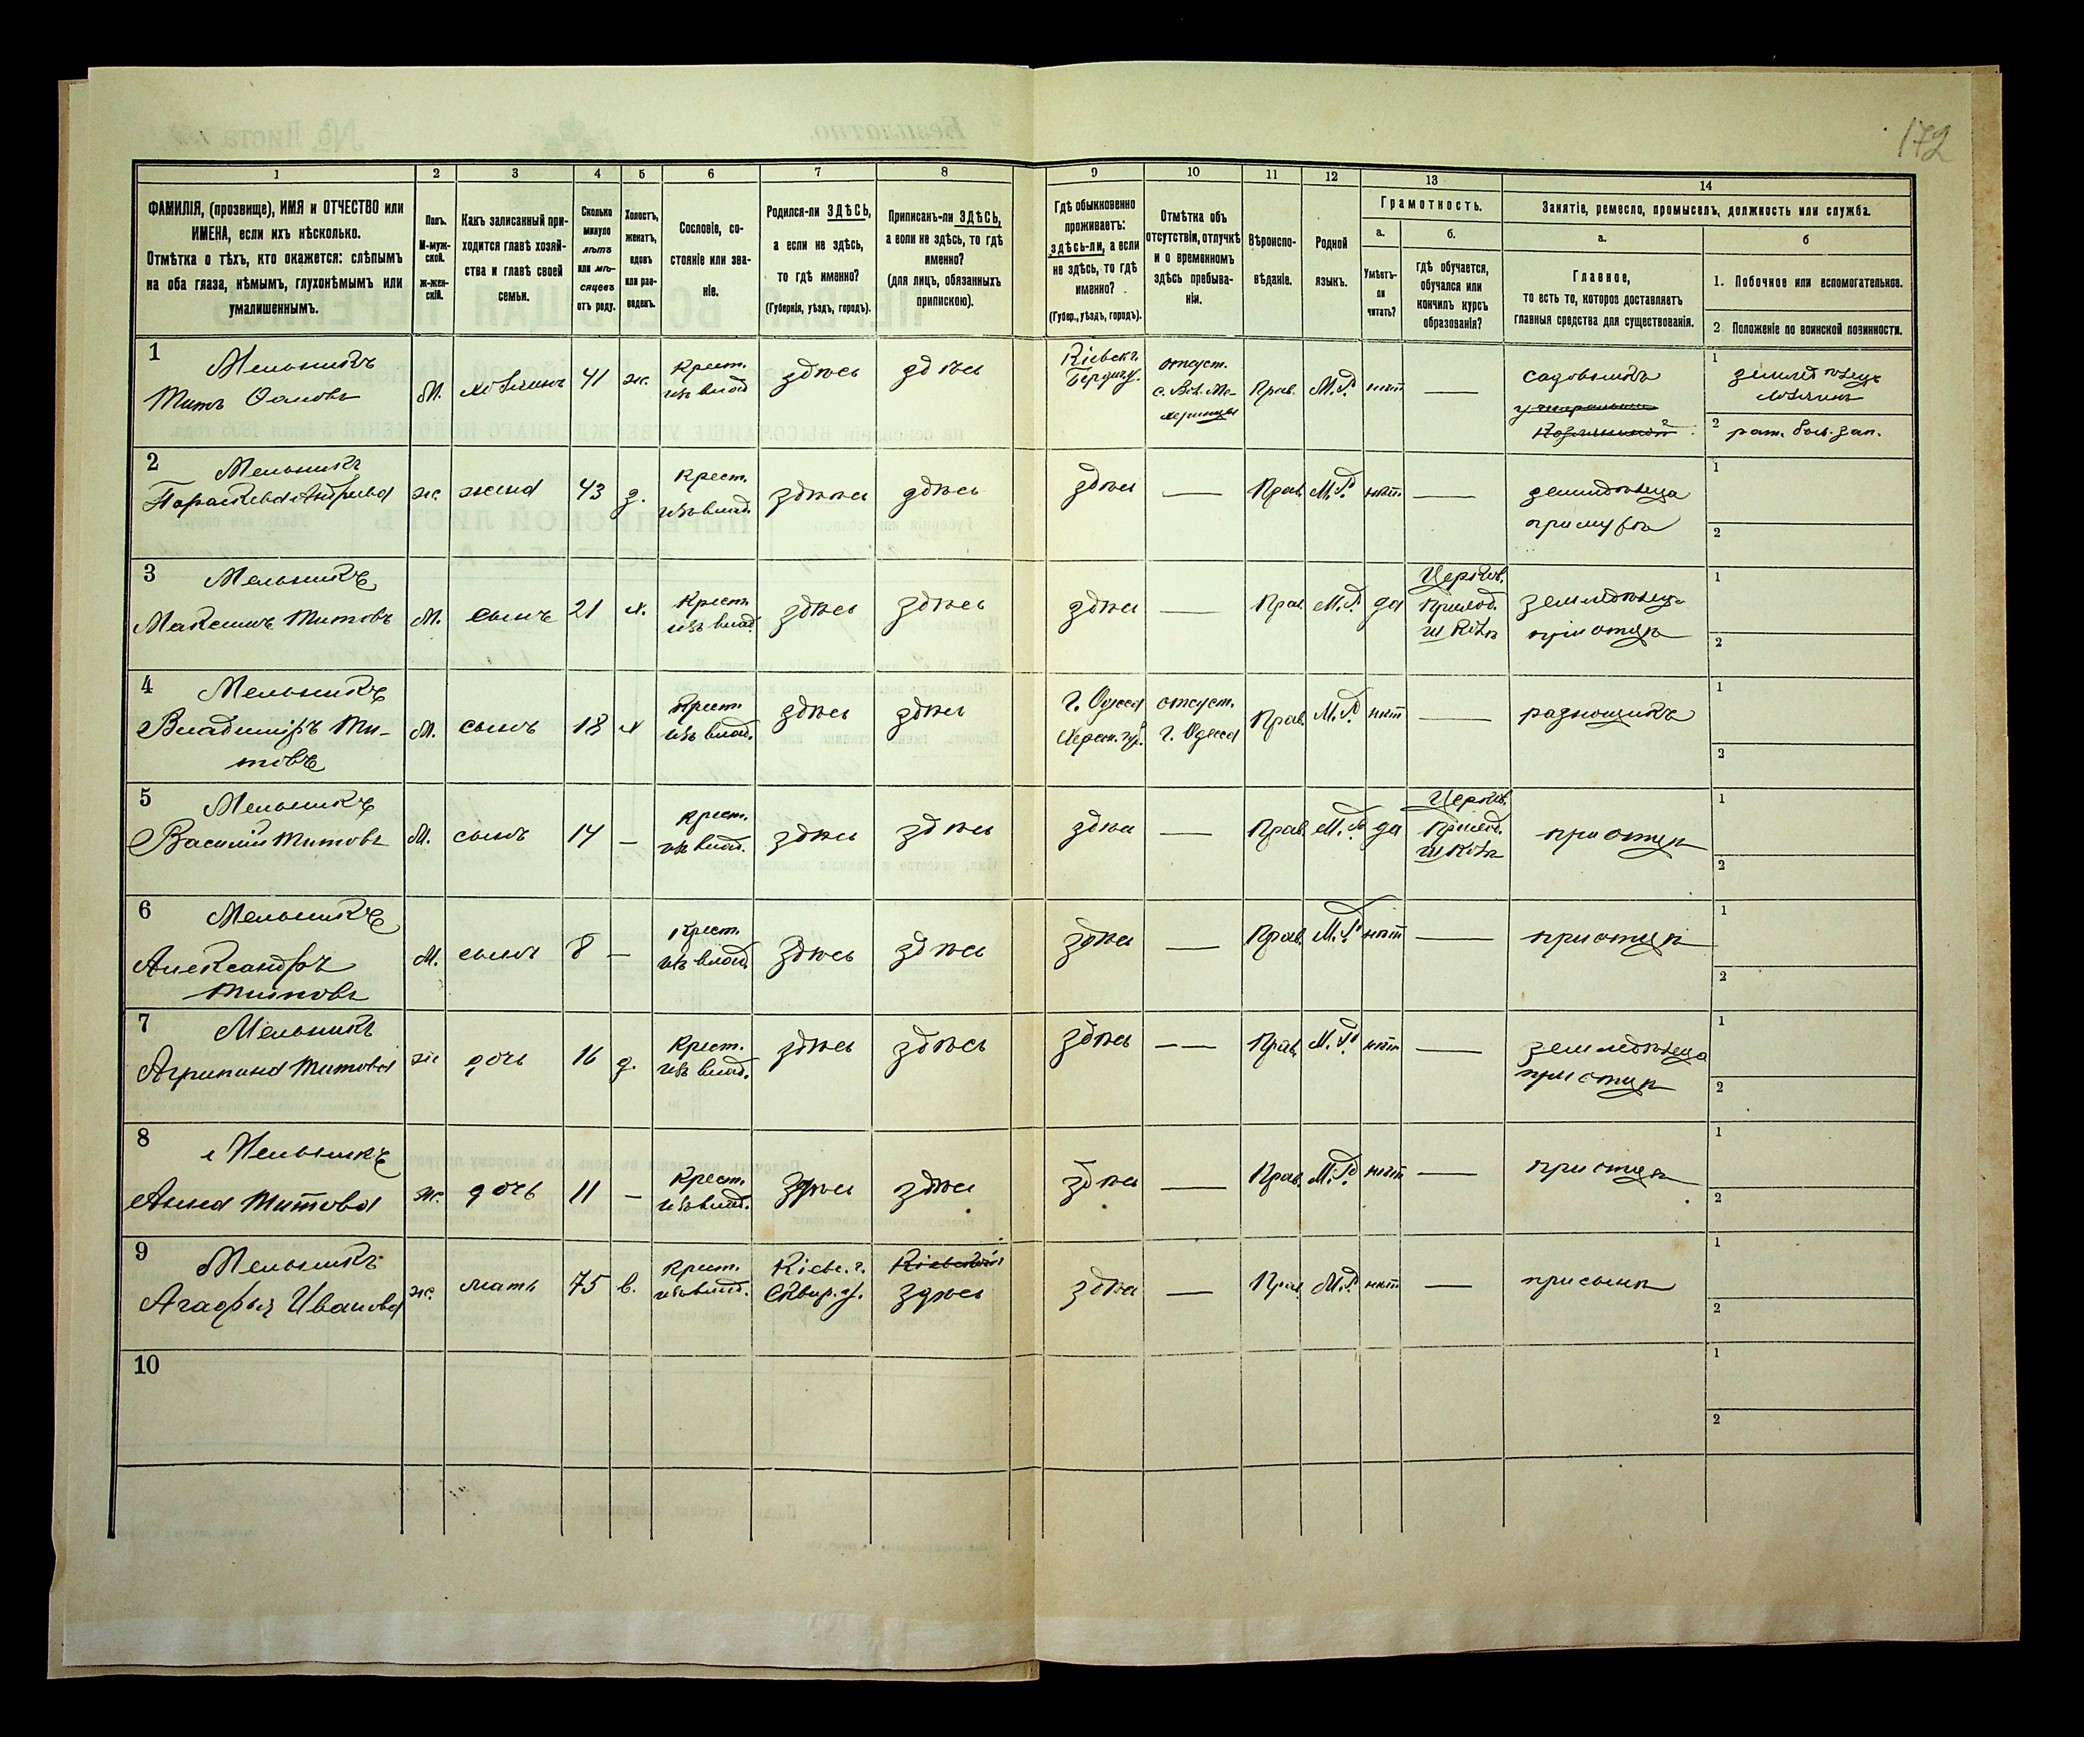 172
1 2 3 4 5 6 7 8 9 10 11 12 13 14
ФАМИЛІЯ, (прозвище), ИМЯ и ОТЧЕСТВО или
ИМЕНА, если ихъ нѣсколько.
Отмѣтка о тѣхъ, кто окажется: слѣпымъ
на оба глаза, нѣмымъ, глухонѣмымъ или
умалишеннымъ.
Полъ.
М-муж-
ской.
Ж-жен-
скій.
Какъ записанный при-
ходится главѣ хозяй-
ства и главѣ своей
семьи.
Сколько
минуло
лѣтъ
или мѣ-
сяцевъ
отъ роду.
Холостъ,
женатъ,
вдовъ
или раз-
веденъ.
Сословіе, со-
стояніе или зва-
ніе.
Родился-ли ЗДѢСЬ,
а если не здѣсь,
то гдѣ именно?
(Губернія, уѣздъ, городъ).
Приписанъ-ли ЗДѢСЬ,
а если не здѣсь, то гдѣ
именно?
(для лицъ, обязанныхъ
припискою).
Гдѣ обыкновенно
проживаетъ:
здѣсь-ли, а если
не здѣсь, то гдѣ
именно?
(Губер., уѣздъ, городъ).
Отмѣтка объ
отсутствіи, отлучкѣ
и о временномъ
здѣсь пребыва-
ніи.
Вѣроиспо-
вѣданіе.
Родной
языкъ.
Грамотность.
а.
Умѣетъ-
ли
читать?
б.
гдѣ обучается,
обучался или
кончилъ курсъ
образованія?
Занятіе, ремесло, промыселъ, должность или служба.
а.
Главное,
то есть то, которое доставляетъ
главныя средства для существованія.
б
1. Побочное или вспомогательное.
2 Положеніе по воинской повинности.
1 Мельникъ
Титъ
М. хозяинъ 41 ж.
Крест.
изъ влад
здѣсь здѣсь
Кіевск. г.
Бердич. у.
отсуст.
Прав. М.Р. нѣт —
садовникъ
1 земледѣлецъ
хозяинъ
2
2 Мельникъ
Параскева Андреева
ж. жена 43 з.
Крест.
изъ влад.
здѣсь здѣсь здѣсь — Прав. М.Р. нѣт —
земледѣлица
при мужѣ
1
2
3 Мельникъ
Максимъ Титовъ
М. сынъ 21 х.
Крест.
изъ влад.
здѣсь здѣсь здѣсь — Прав. М.Р. да
Церков.
приход.
школѣ
земледѣлецъ
при отцѣ
1
2
4 Мельникъ
Владиміръ Ти-
товъ
М. сынъ 18 х
Крест.
изъ влад.
здѣсь здѣсь
г. Одесса
Херсон. губ.
отсуст.
г. Одесса
Прав. М.Р. нѣт —
разнощикъ
1
2
5 Мельникъ
Василій Титовъ
М. сынъ 14 —
Крест.
изъ влад.
здѣсь здѣсь здѣсь — Прав. М.Р. да
Церков.
приход.
школѣ
при отцѣ
1
2
6 Мельникъ
Александръ
Титовъ
М. сынъ 8 —
Крест.
изъ влад.
здѣсь здѣсь здѣсь — Прав. М.Р. нѣт —
при отцѣ
1
2
7 Мельникъ
Агрипина Титова
ж дочь 16 д.
Крест.
изъ влад.
здѣсь здѣсь здѣсь — — Прав. М.Р. нѣт —
земледѣлица
при отцѣ
1
2
8 Мельникъ
Анна Титова
ж. дочь 11 —
Крест.
изъ влад.
здѣсь здѣсь здѣсь — Прав. М.Р. нѣт —
при отцѣ
1
2
9 Мельникъ
Агафья Иванова
ж. мать 75 в.
Крест.
изъ влад.
Кіевс. г.
Сквир. у.
здѣсь
здѣсь — Прав. М.Р. нѣт —
при сынѣ
1
2
10
1
2